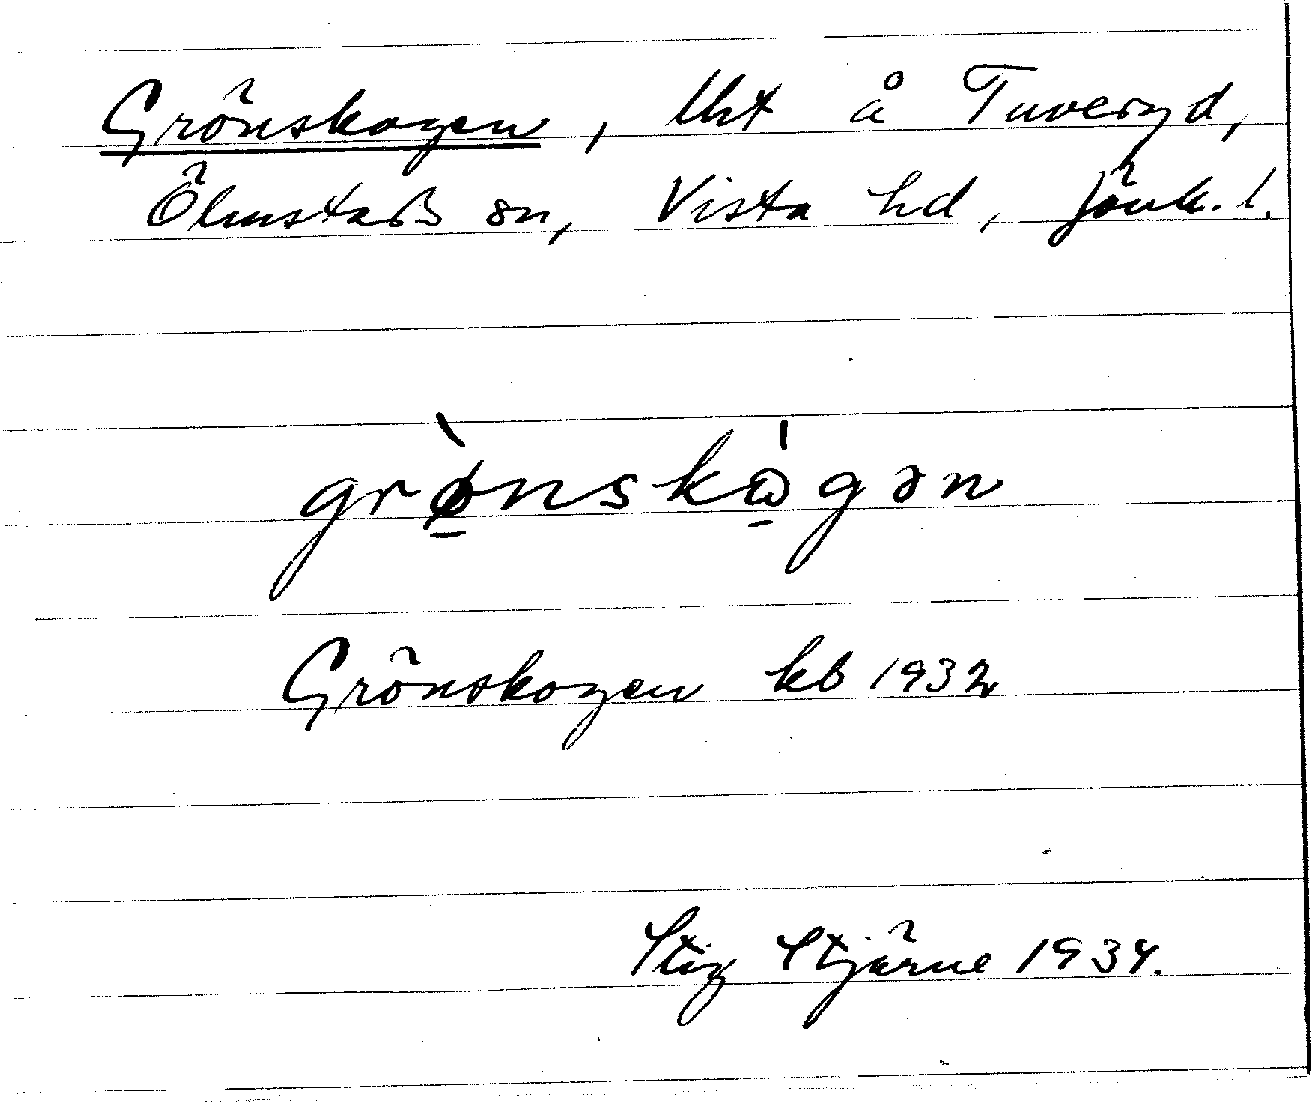 Grönskogen, lht å Tuveryd,
Ölmstads sn, Vista hd, Jönk. l.
grø̀nskɷ́gən
Grönskogen kb 1932
Stig Stjärne 1934.